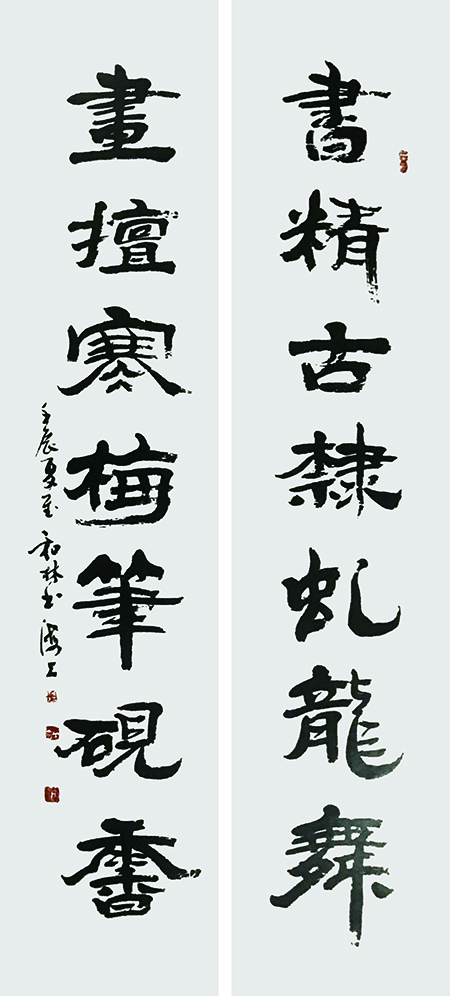 書精古隸虬龍舞
畫擅寒梅筆硯香
壬辰夏至 和林书 海上